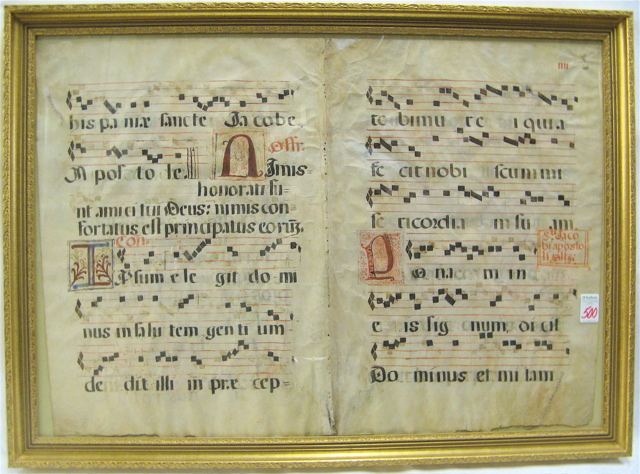 his pa niæ sancte Ia cobe
A pos to le. Nimis
honorati su=
nt amici tui Deus: nimis con
fortatus est principatus eorũ.
Ipsum e le git do mi
nus in salu tem gen ti um
de dit illi in præ cep=
IIII
te bimu te qui a
fe cit nobi scum mi
se ricordia m su am
Po nac m in
e is sig num, di cit
Do minus et mi tam
500